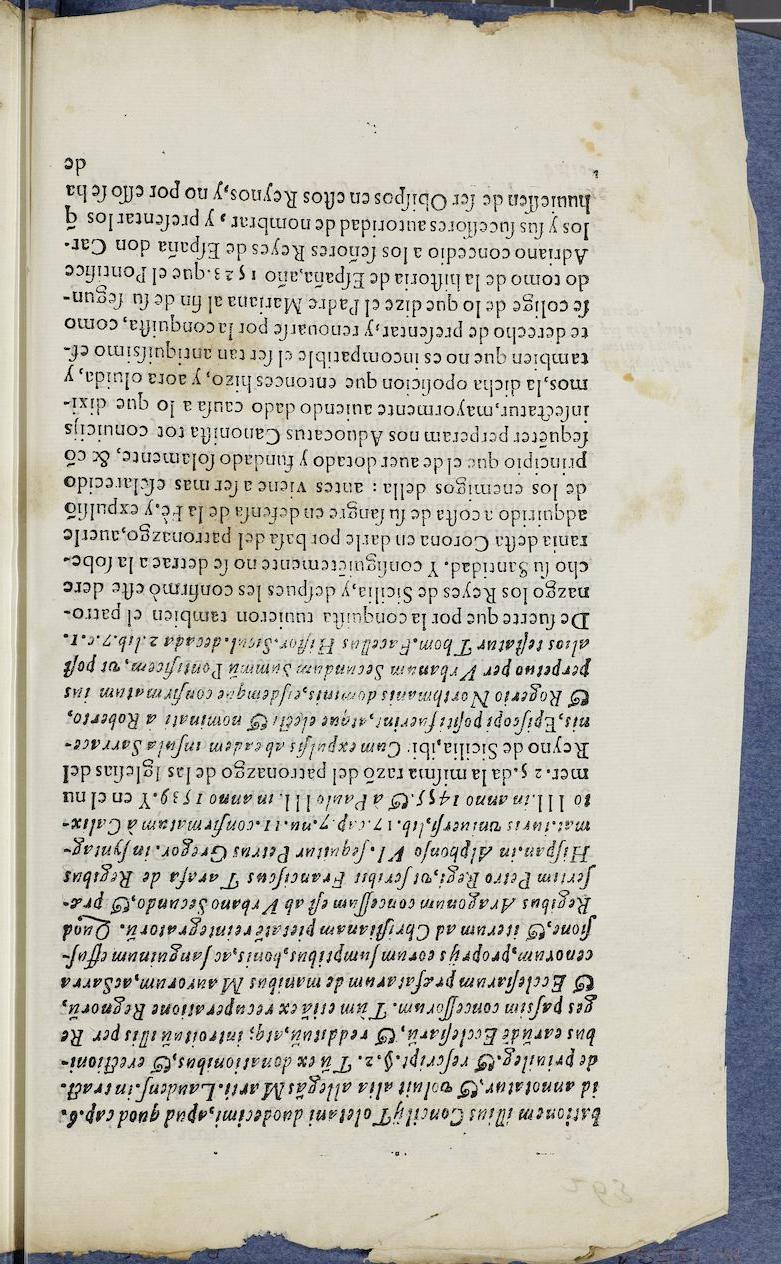 bationem illius Concilij Toletani duodecimi, apud quod cap.6.
id annotatur, & voluit alia allegãs Marti. Laudens. in tract.
de priuileg. & rescript. §. 2. Tũ ex donationibus, & erectioni-
bus earũdẽ Ecclesiarũ, & reddituũ, atq; introituũ illis per Re
ges passim concessorum. Tùm etiã ex recuperatione Regnorũ,
& Ecclesiarum præfatarum de manibus Maurorum, ac Sarra
cenorum, proprijs eorum sumptibus, bonis, ac sanguinum effus-
sione, & iterum ad Christianam pietatẽ reintegratorũ. Quod
Regibus Aragonum concessam est ab Vrbano Secundo, & præ-
sertim Petro Regi, vt scribit Franciscus Tarafa de Regibus
Hispan. in Alphonso VI. sequitur Petrus Gregor. in syntag-
mat. iuris vniuers. lib. 17. cap. 7. nu. 11. confirmatum à Calix-
to III. in anno 1455. & à Paulo III. in anno 1539. Y en el nu
mer. 25. da la misma razõ del patronazgo de las Iglesias del
Reyno de Sicilia, ibi: Cum expulsis ab eadem insula Sarrace-
nis, Episcopi positi fuerint, atque electi & nominati à Roberto,
& Rogerio Northmanis dominis, eisdemque confirmatum ius
perpetuo per Vrbanum Secundum Summũ Pontificem, vt post
alios testatur Thom. Facellus Histor. Sicul. decada 2. lib. 7. c. 1.
De suerte que por la conquista tuuieron tambien el patro-
nazgo los Reyes de Sicilia, y despues les confirmò este dere
cho su Santidad. Y consiguiẽtemente no se detrae a la sobe-
rania desta Corona en darle por basa del patronazgo, auerle
adquirido a costa de su sangre en defensa de la Fè, y expulsiõ
de los enemigos della : antes viene a ser mas esclarecido
principio que el de auer dotado y fundado solamente, & cõ
sequẽter perperam nos Aduocatus Canonista tot conuicijs
insectatur, mayormente auiendo dado causa a lo que dixi-
mos, la dicha oposicion que entonces hizo, y aora oluida, y
tambien que no es incompatible el ser tan antiquissimo es-
te derecho de presentar, y renouarse por la conquista, como
se colige de lo que dize el Padre Mariana al fin de su segun-
do tomo de la historia de España, año 1523. que el Pontifice
Adriano concedio a los señores Reyes de España don Car-
los y sus sucessores autoridad de nombrar, y presentar los q̃
huuiessen de ser Obispos en estos Reynos, y no por esso se ha
de